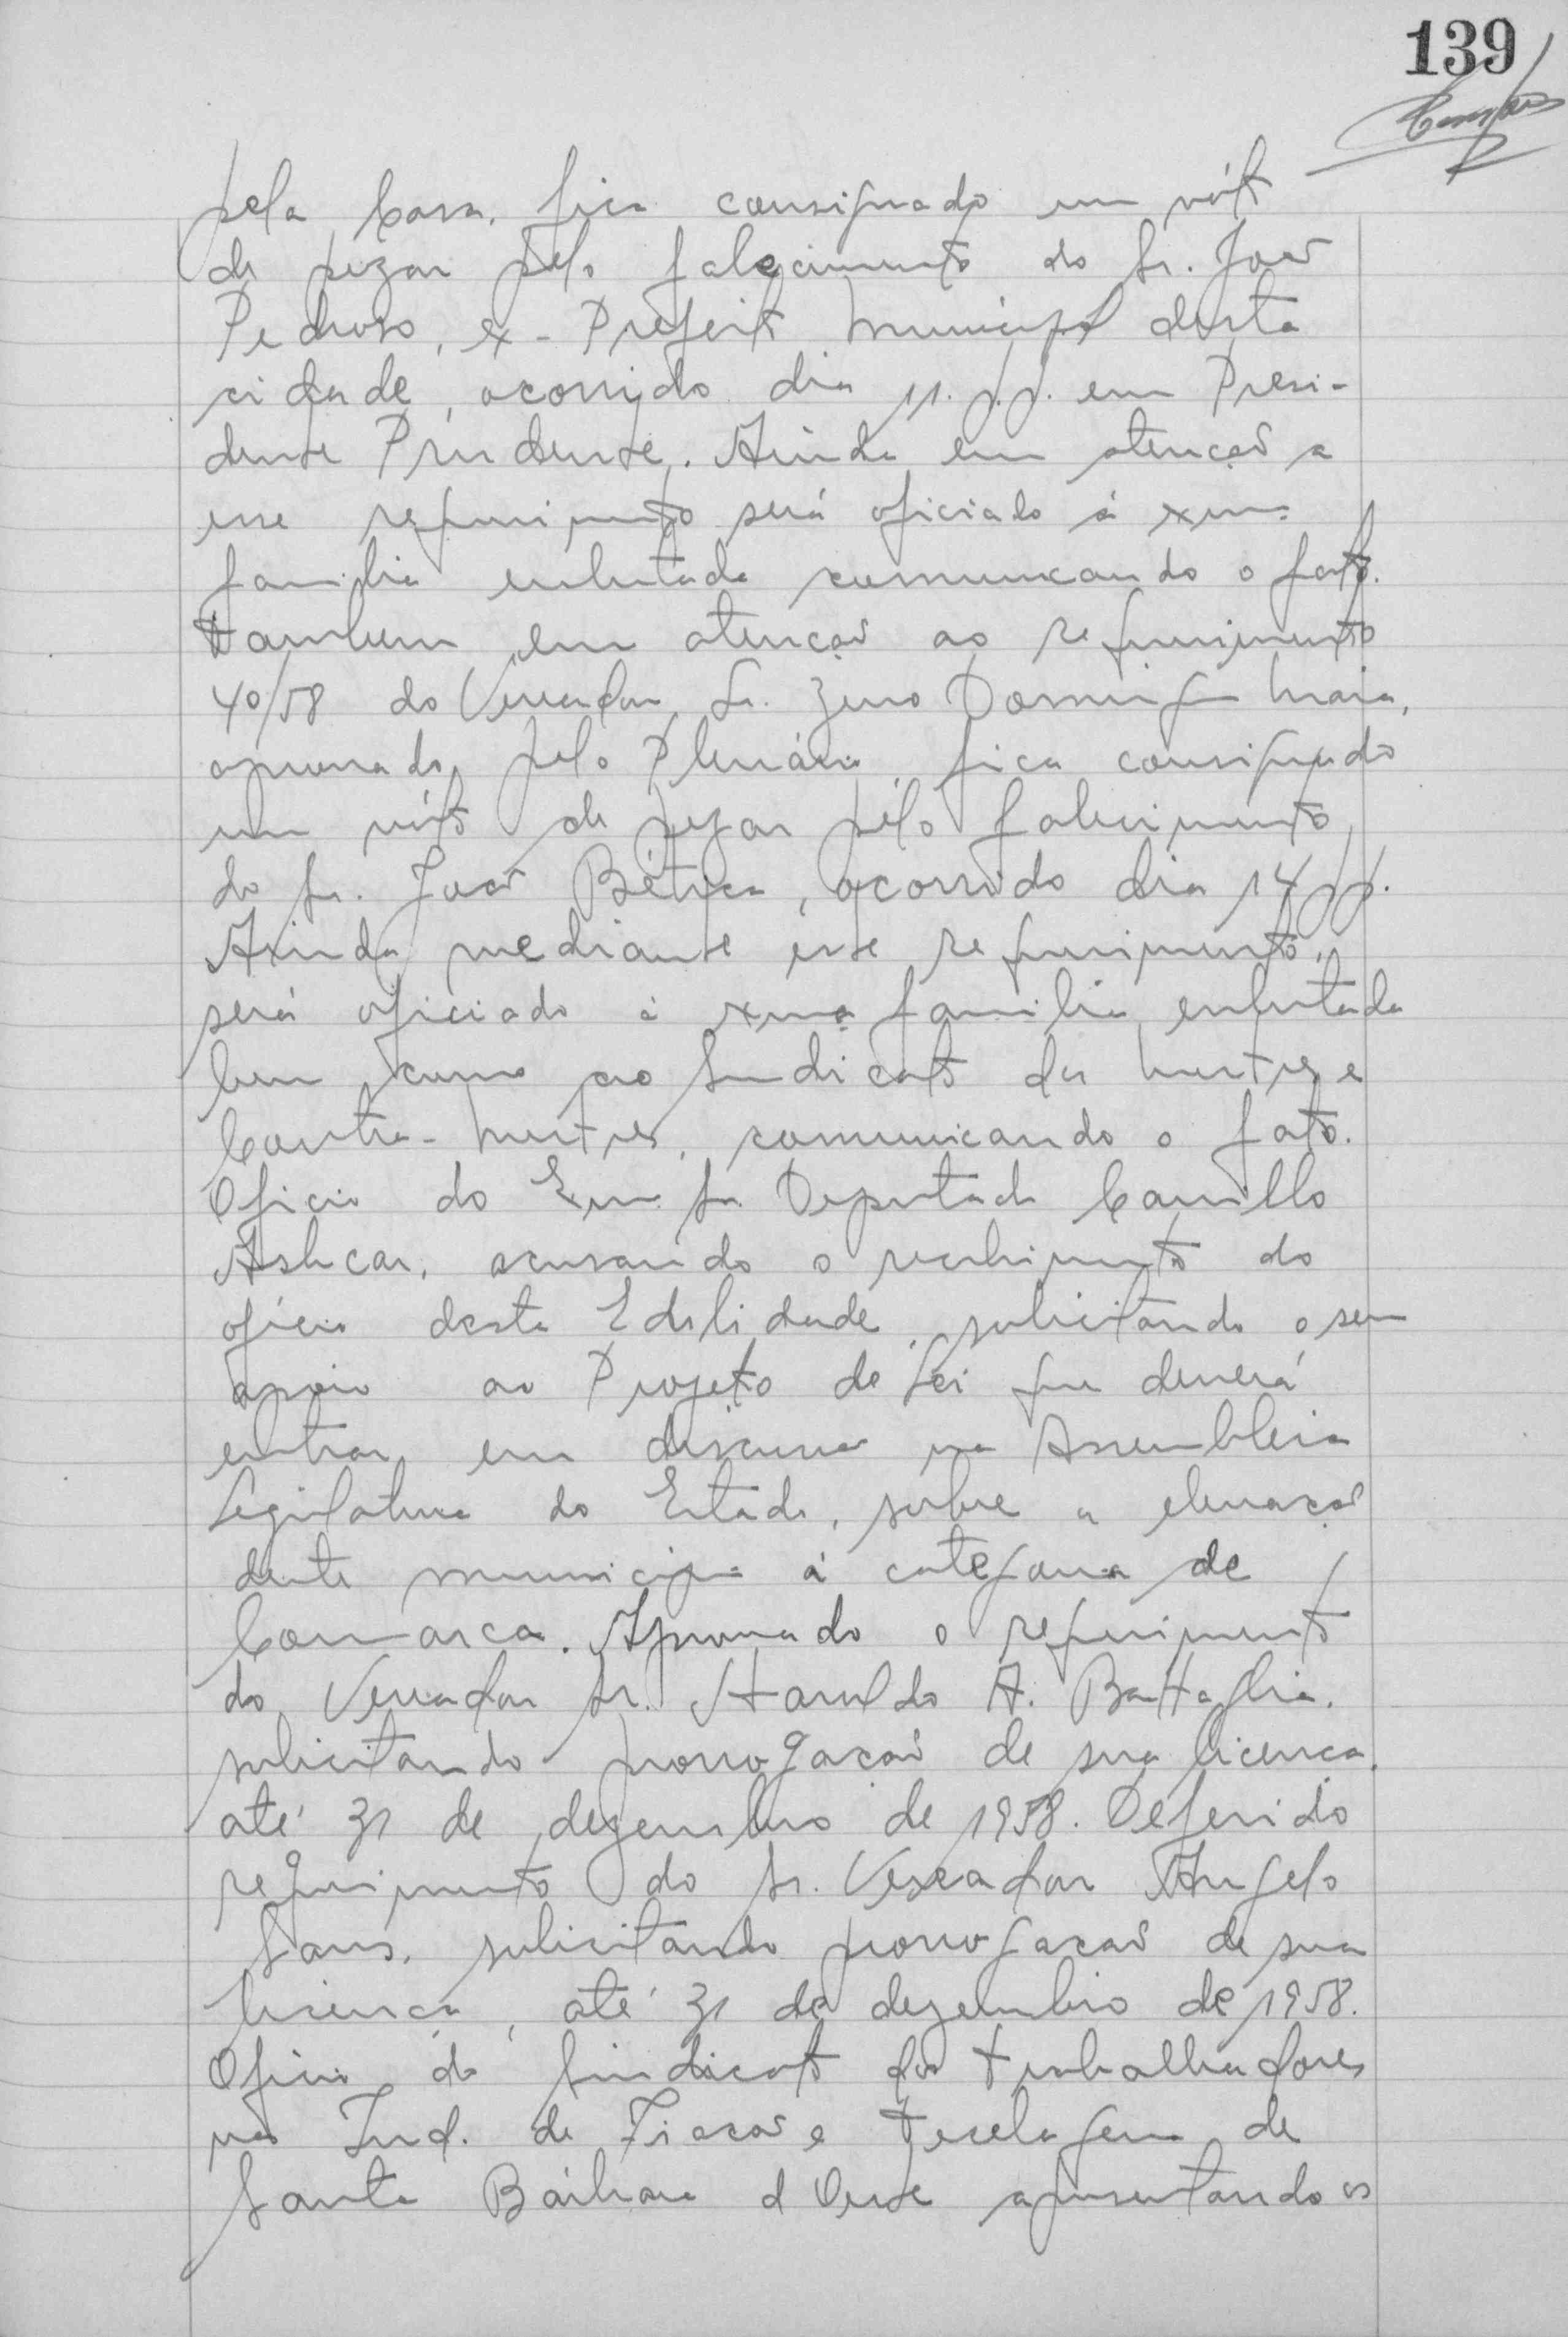 139
pela Casa, fica consignado um vóto
de pezar pelo falecimento do Sr. João
Pedroso, ex-Prefeito Municipal desta
cidade, ocorrido dia 11. p.p. em Presi-
dente Prudente. Ainda em atenção a
esse requerimento será oficiado á exma.
familia enlutada comunicando o fato.
Tambem em atenção ao requerimento
40/58 do Vereador Sr. Zeno Domingos Maia,
aprovado pelo Plenário, fica consignado
um vóto de pezar pélo falecimento
do Sr. João Bética, ocorrido dia 14 p.p.
Ainda mediante esse requerimento,
será oficiado á exma familia enlutada
bem como ao Sindicato dos Mestres e
Contra-Mestres, comunicando o fato.
Oficio do Exm. Sr. Deputado Camillo
Ashcar, acusando o recebimento do
ofício desta Edilidade, solicitando o seu
apoio ao Projeto de Lei que deverá
entrar em discussão na Assembleia
Legislativa do Estado, sobre a elevação
deste municipio á categoria de
Comarca. Aprovado o requerimento
do Vereador Sr. Haroldo A. Battaglia,
solicitando prorrogação de sua licença,
até 31 de dezembro de 1958. Deferido
requerimento do Sr. Vereador Angelo
Sans, solicitando prorrogação de sua
licença, até 31 de dezembro de 1958.
Ofício do Sindicato dos trabalhadores
nas Ind. de Fiação e Tecelagem de
Santa Bárbara d'Oeste apresentando os